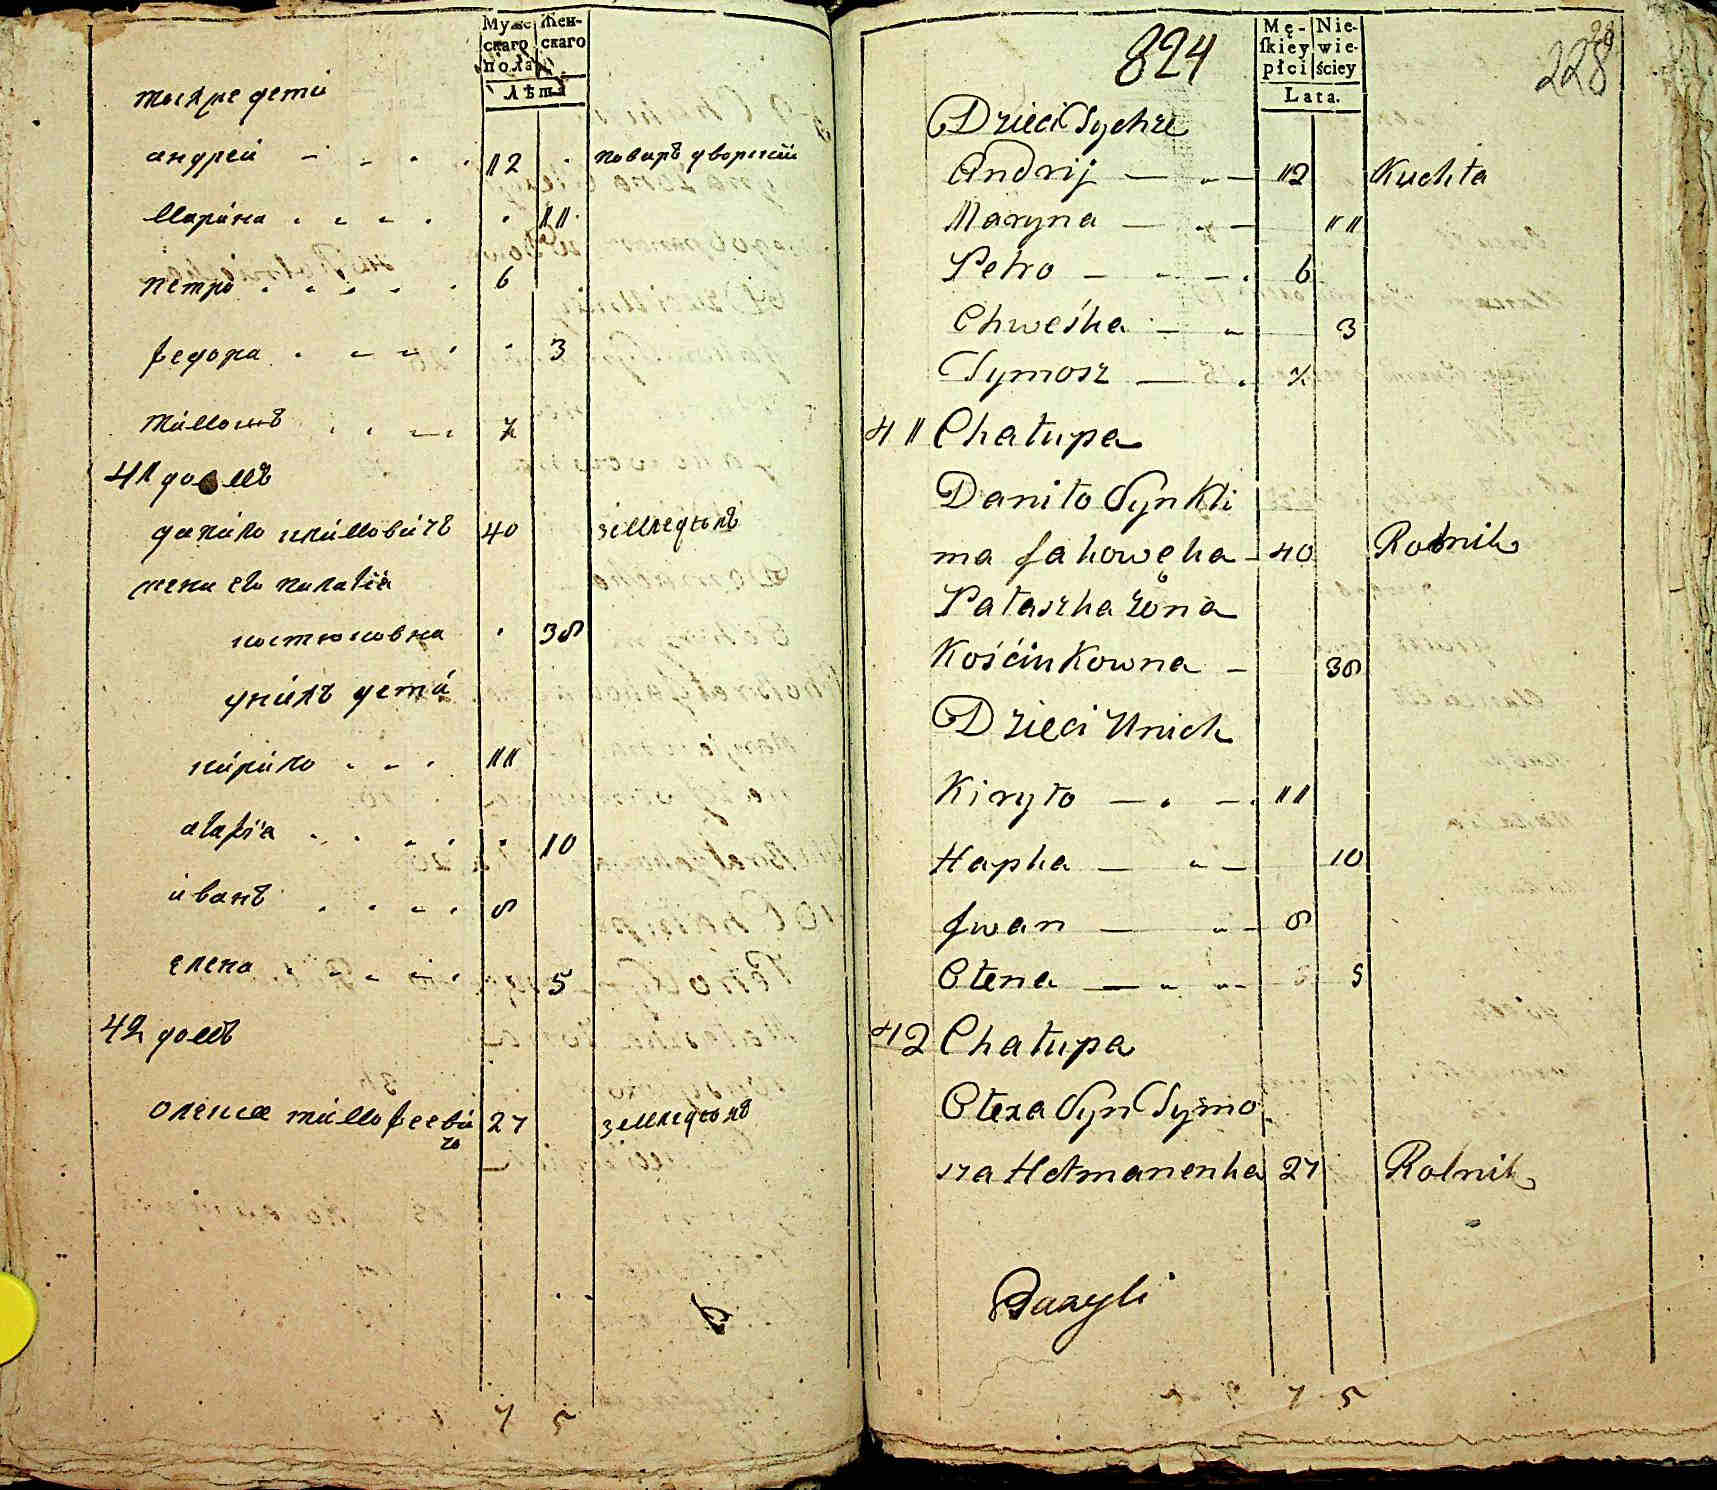 Муже
скаго
пола
Жен-
скаго
Лѣта
тыхже дети
андрей 12 поваръ дворский
Марина 11
петро 6
федора 3
тимошъ ½
41 домъ
данило климовичъ 40 земледѣлъ
жена его палагія
костюковна 38
унихъ дети
кирило 11
агафія 10
иванъ 8
елена 5
42 домъ
олекса тимофееви
чъ 27 земледѣлъ
7 5
824
228
Mę-
skiey
płci
Nie-
wie-
ściey
Lata.
Dzieci Tychże
Andrij 12 Kuchta
Maryna 11
Petro 6
Chweśka 3
Tymosz ½
41 Chałupa
Daniło Syn Kli
ma Jakowęka 40 Rolnik
Pałaszka żona
Kościukowna 38
Dzieci Unich
Kiryło 11
Hapka 10
Jwan 8
Ołena 5
42 Chałupa
Ołexa Syn Tymo
sza Hetmanenka 27 Rolnik
Bazyli
7 5